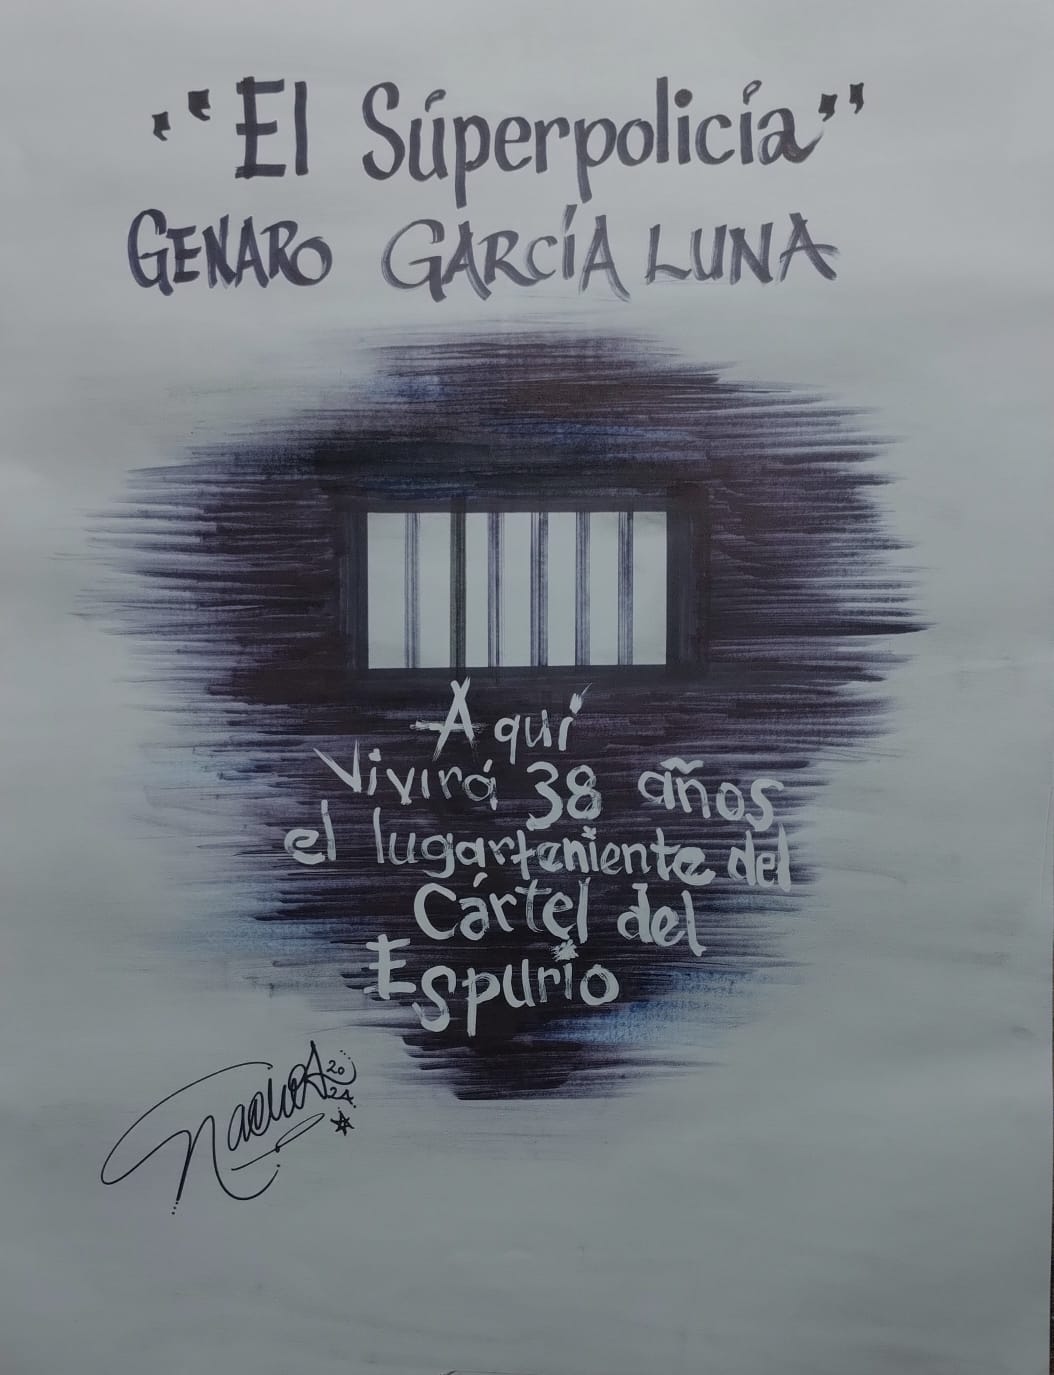 "El Súperpolicía"
GENARO GARCÍA LUNA
Aquí
Vivirá 38 años
el lugarteniente del
Cártel del
Espurio
NachoA
20
24